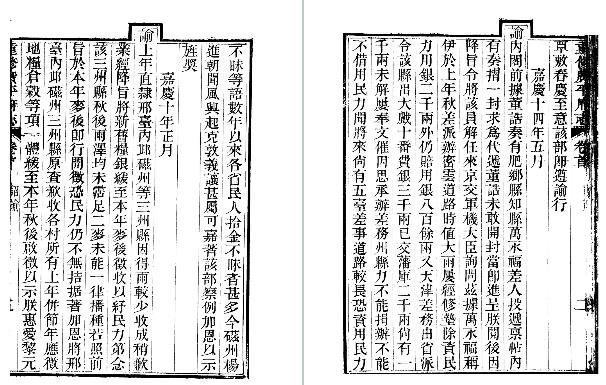 重修廣平府志 卷首
覃敷春慶至意該部即遵諭行
嘉慶十四年五月
諭內閣前據董誥奏有肥鄉縣知縣萬永福差人投遞稟帖內
有奏摺一封求爲代遞董誥未敢開封當即進呈朕閱後因
降旨令將該員解任來京交軍機大臣詢問茲據萬永福稱
伊於上年秋差派辦密雲道路時值大雨屢經修墊除資民
力用銀二千兩外仍賠用銀八百餘兩又天津差務出省派
令該縣出大戟十番費銀三千兩已交藩庫二千兩尙有一
千兩未解屢奉文催因思承辦差務州縣力不能捐辦不能
不借用民力聞將來尙有五臺差事道路較長恐資用民力
不昧等語數年以來各省民人拾金不昧者甚多今磁州楊
進朝聞風興起克敦義讓甚屬可嘉著該部察例加恩以示
旌奬
嘉慶十年正月
諭上年直隸邢臺內邱磁州等三州縣因得雨較少收成稍歉
業經降旨將新舊糧銀緩至本年麥後徵收以紓民力第念
該三州縣秋後雨澤均未霑足二麥未能一律播種若照前
旨於本年麥後即行開徵恐民力仍不無拮据著加恩將邢
臺內邱磁州三州縣原查歉收各村所有上年併節年應徵
地糧倉穀等項一體緩至本年秋後啟徵以示朕惠愛黎元
重修廣平府志 卷首